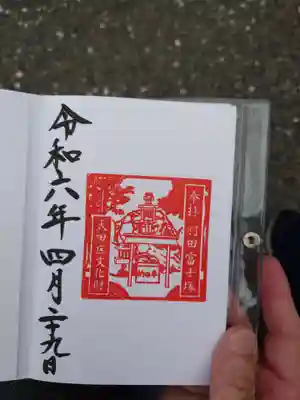 奉拝 羽田富士塚
大田区文化財
令和六年 四月二十九日